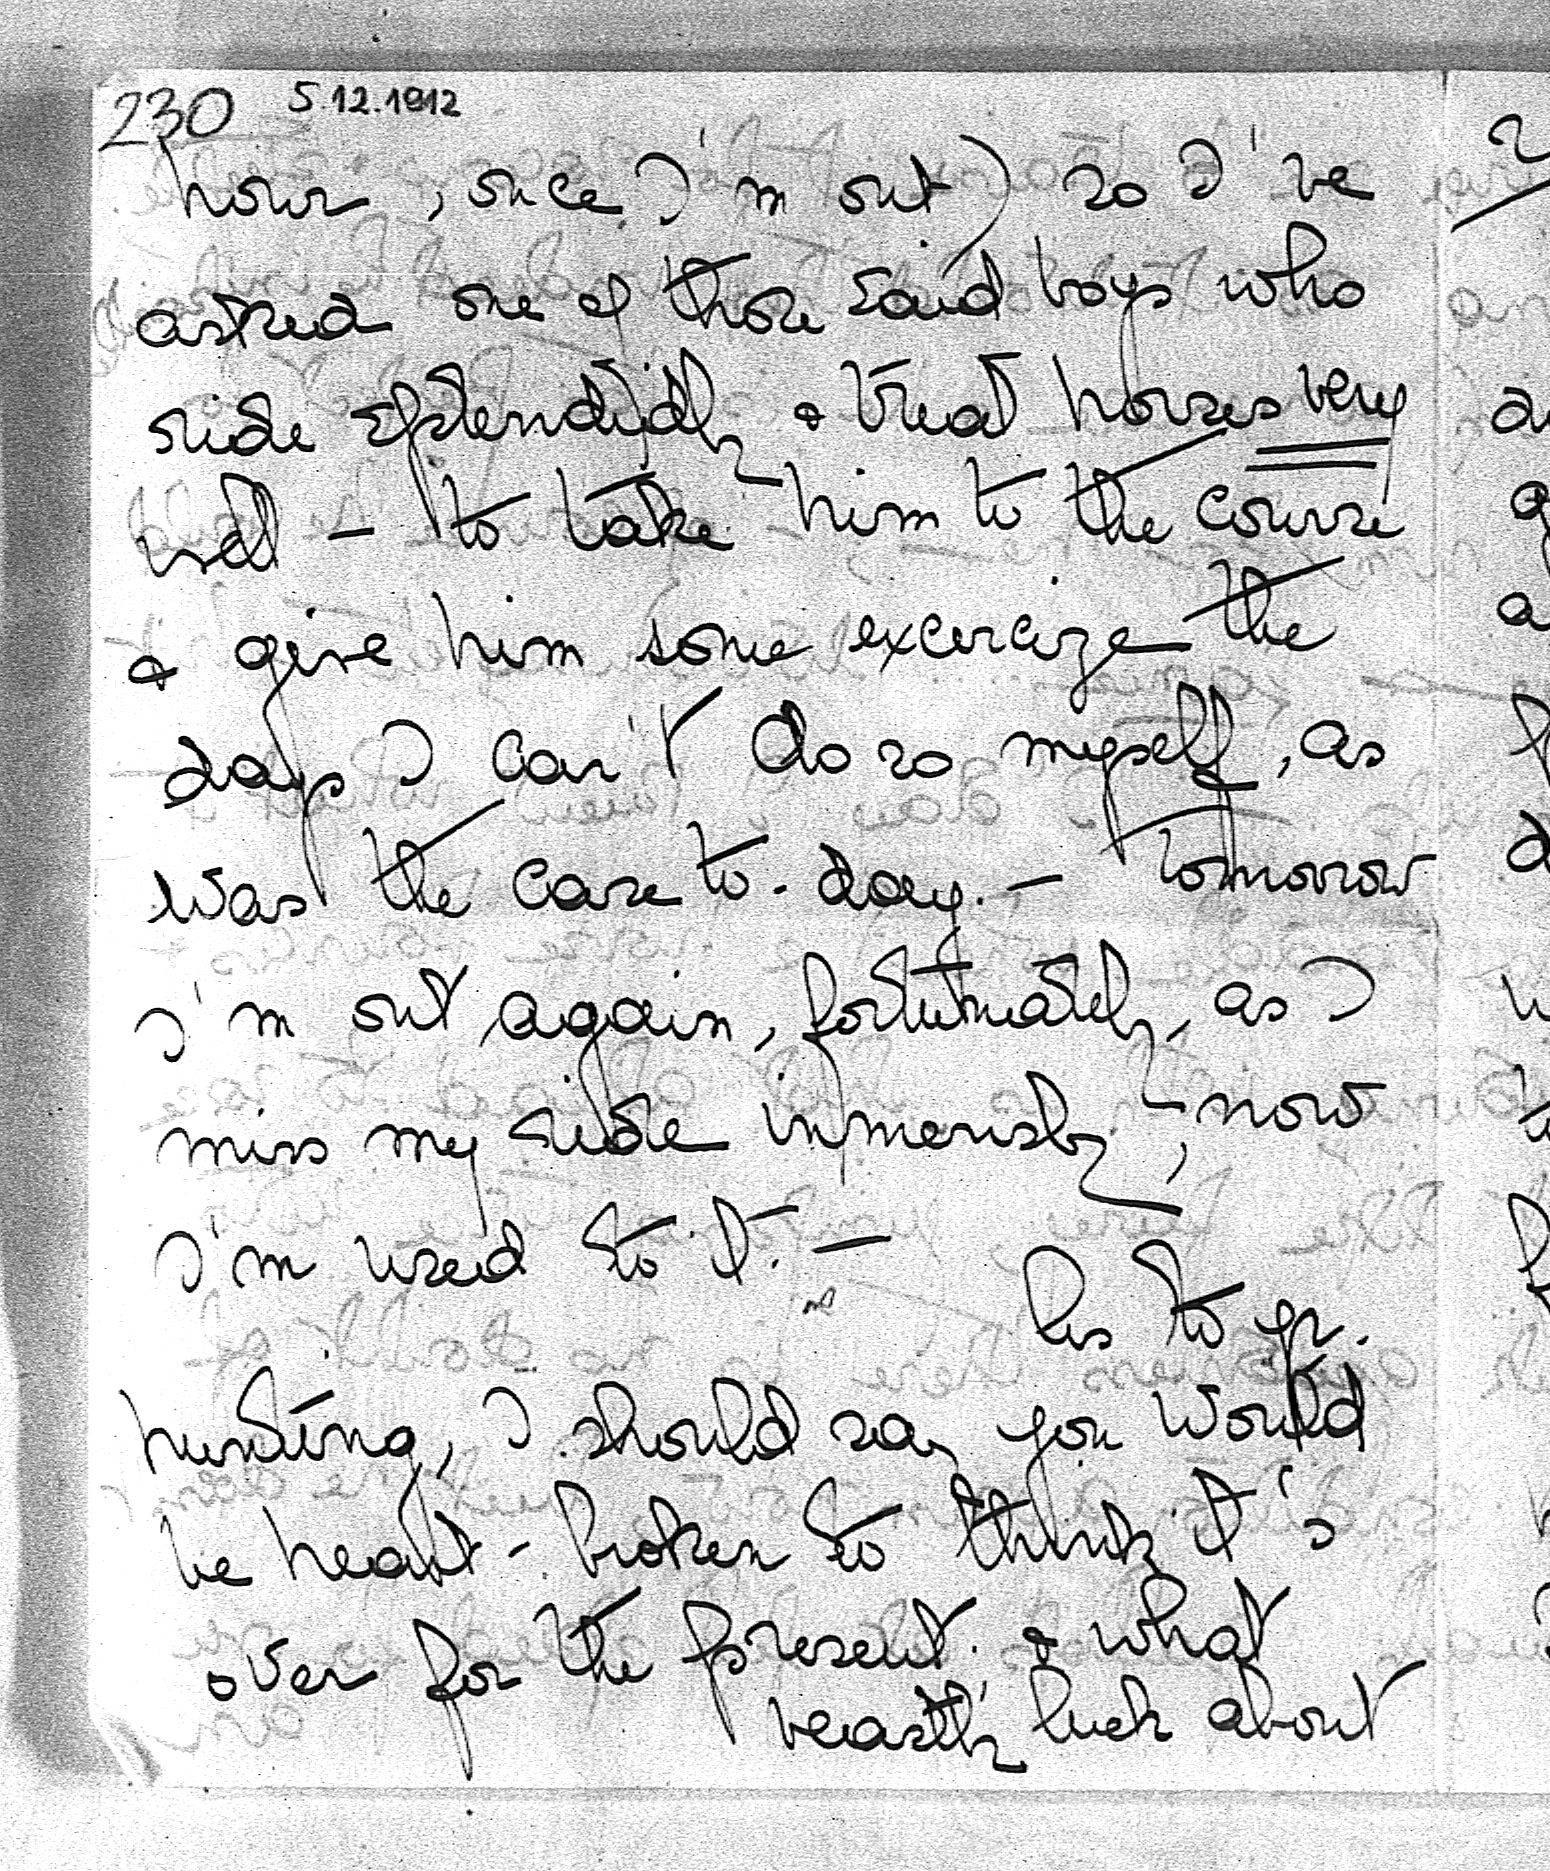 230 5.12.1912
hour, once I'm out) so I've
asked one of those Said boys who
ride splendidly & treat horses very
well - to take him to the course
& give him some excercize the
days I can't do so myself, as
was the case to-day. - Tomorrow
I'm out again, fortunately, as I
miss my ride immensely, now
I'm used to it. -
As to yr.
hunting, I should say you would
be heart-broken to think it's
over for the present. & what
beastly luck about